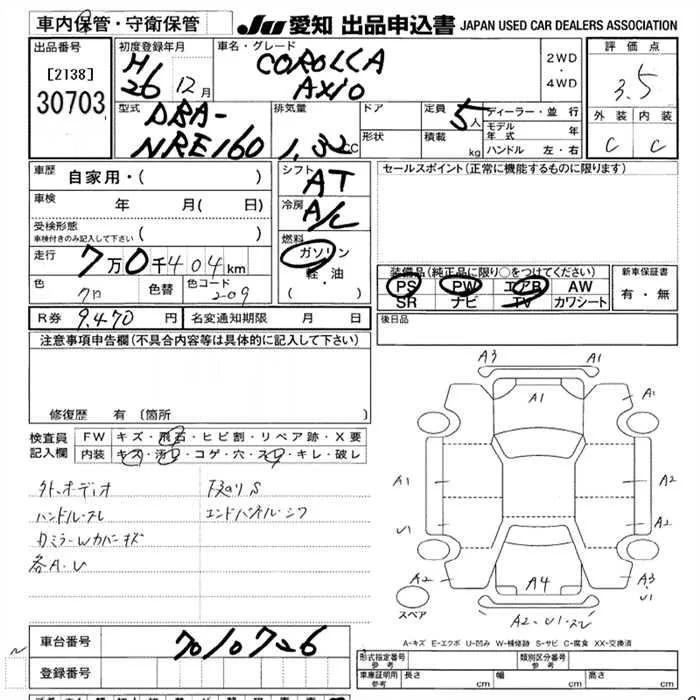 車内保管・守衛保管 JU 愛知 出品申込書 JAPAN USED CAR DEALERS ASSOCIATION
出品番号 [2138] 30703
初度登録年月 H26 12月
車名・グレード COROLLA AXIO
2WD ・ 4WD
評価点 3.5
外装 内装
C C
型式 DBA-NRE160
排気量 1.32 CC
ドア
形状
定員 5人
積載 kg
ディーラー・並行
モデル年式 年
ハンドル 左・右
車歴 自家用・( )
車検 年 月( 日)
受検形態
車検付きのみ記入して下さい ( )
走行 7万0千404km
色 クロ 色替 色コード 209
シフト AT
冷房 A/C
燃料
ガソリン
軽・油
( )
セールスポイント(正常に機能するものに限ります)
装備品(純正品に限り○をつけてください)
PS PW エアB AW
SR ナビ TV カワシート
新車保証書
有・無
R券 9,470円 名変通知期限 月 日
後日品
注意事項申告欄(不具合内容等は具体的に記入して下さい)
修復歴 有 (箇所 )
検査員記入欄
FW キズ・飛石・ヒビ割・リペア跡・X要
内装 キズ・汚レ・コゲ・穴・スレ・キレ・破レ
外.オーディオ
ハンドル・スレ
カミラーWカバーキズ
各A.U
下廻りS
A3 A1
A1 A1
A1 A2
U1 A2
A2 A4 A3 U1
スペア A2・U1・スレ
A-キズ E-エクボ U-凹み W-補修跡 S-サビ C-腐食 XX-交換済
車台番号 7010726
登録番号
形式指定番号 参考
類別区分番号 参考
車庫証明用 参考 長さ cm 幅 cm 高さ cm